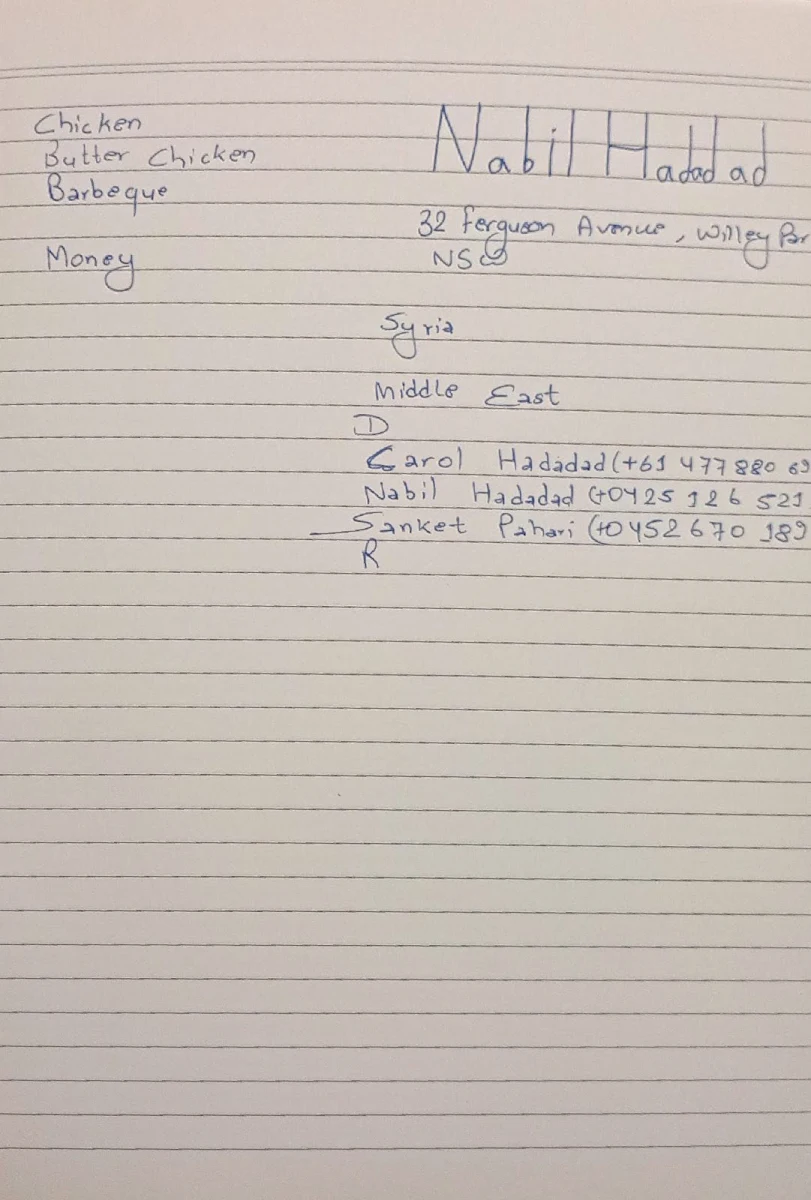 Chicken
Butter Chicken
Barbeque
Money
Nabil Hadadad
32 Ferguson Avenue, Willey Par
NSW
Syria
Middle East
D
Carol Hadadad (+61 477 880 69
Nabil Hadadad (+0425 126 521
Sanket Pahari (+0452 670 189
R